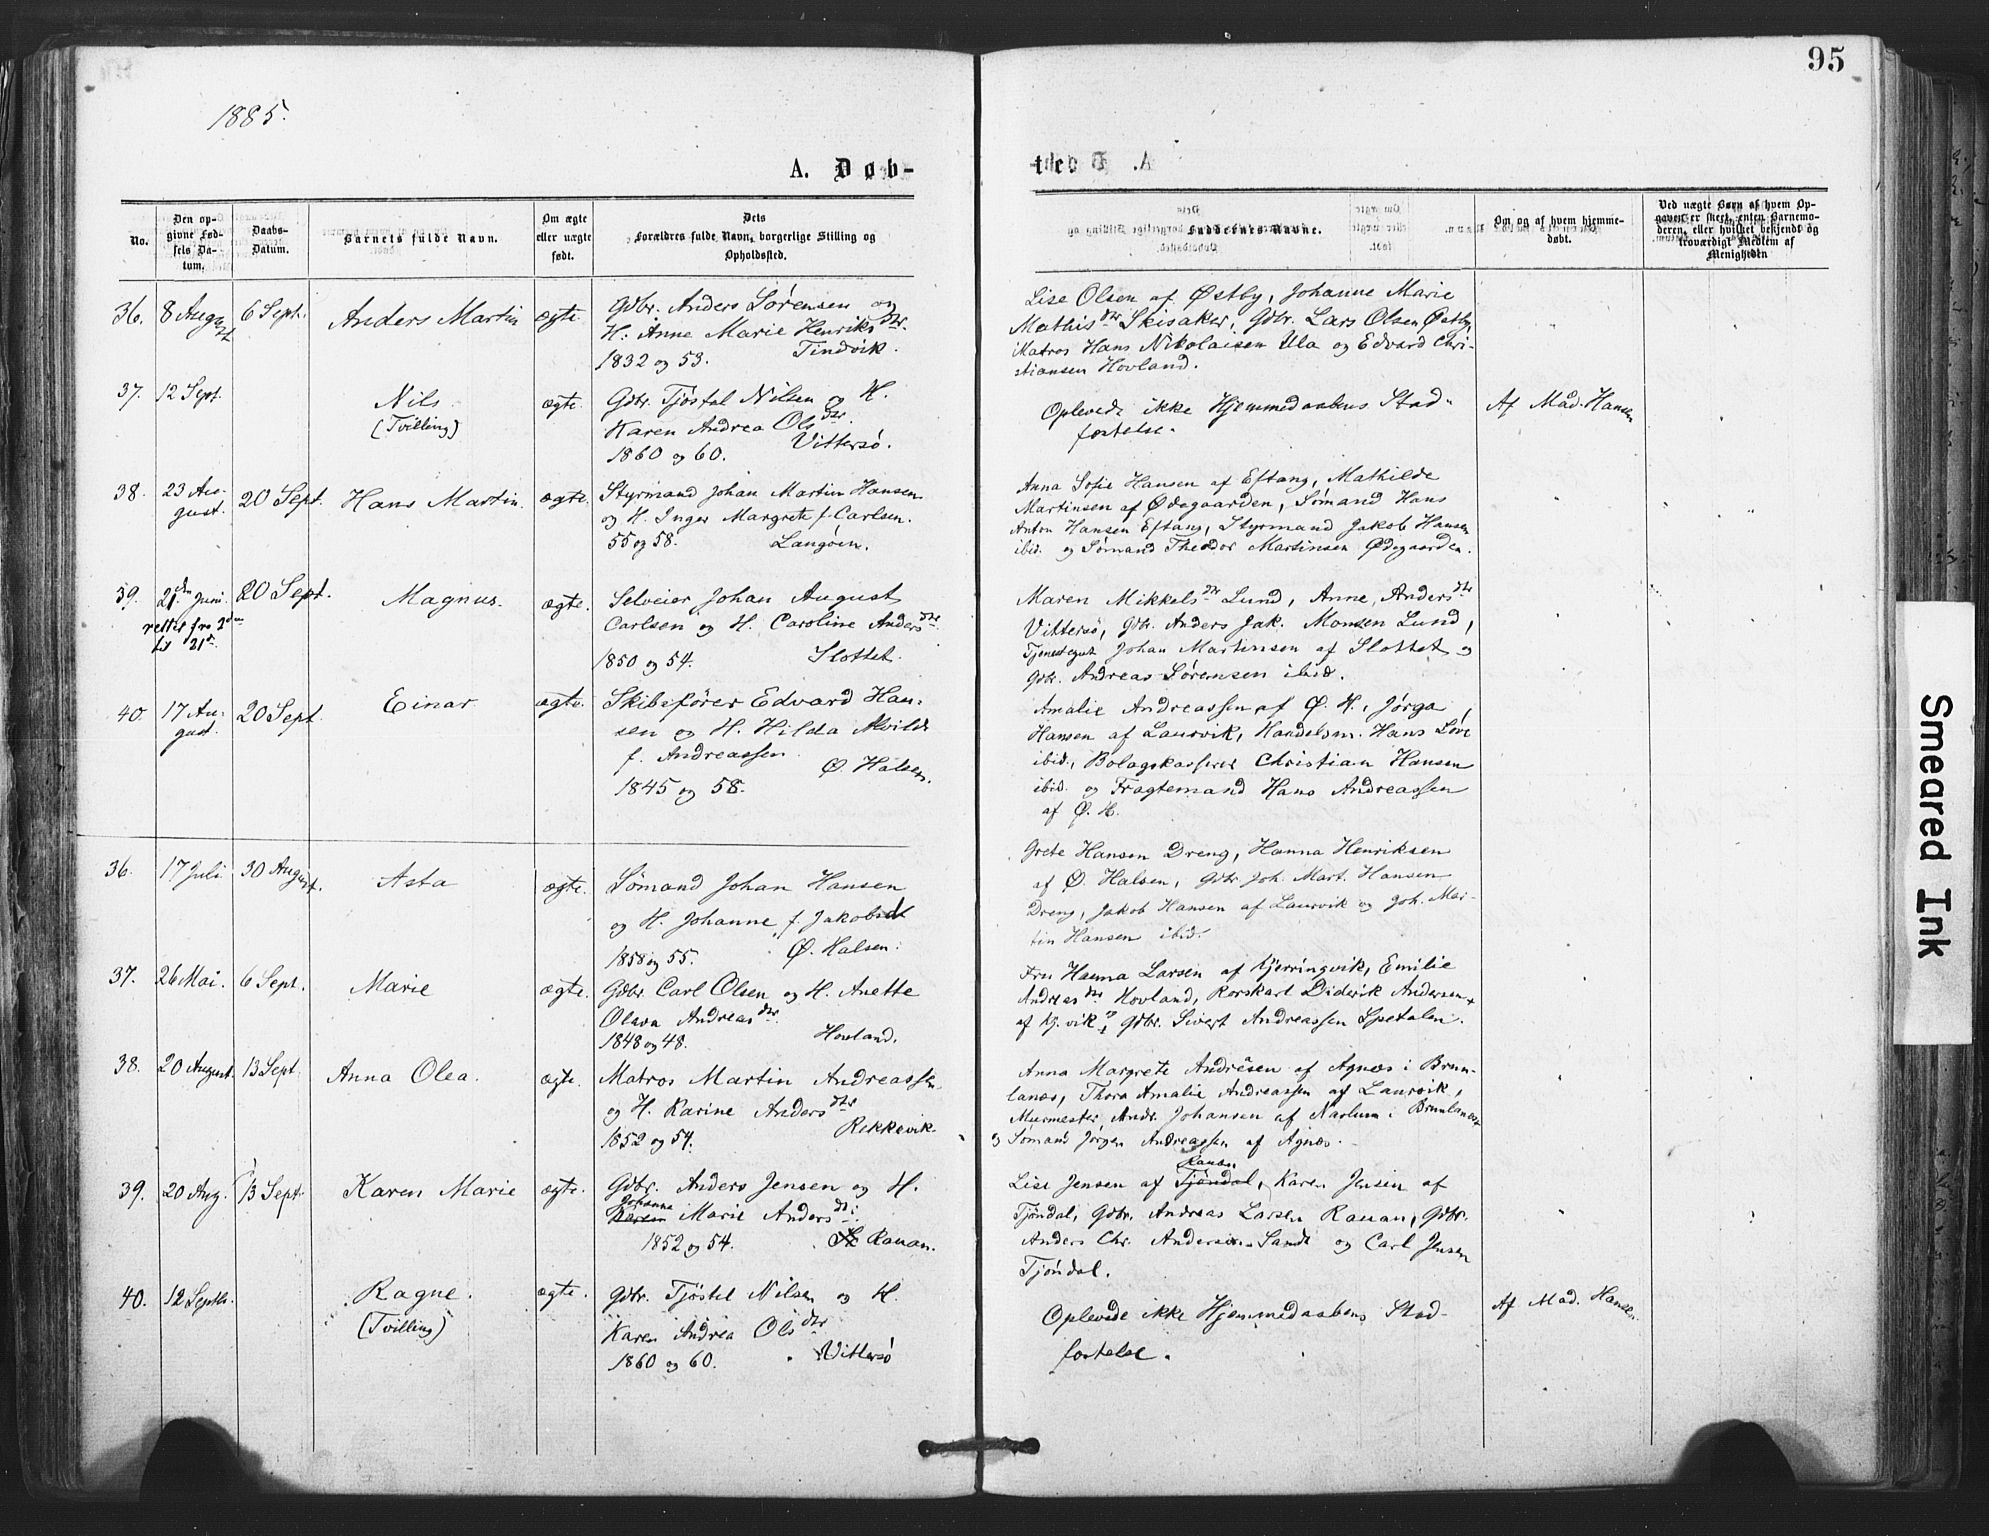 95
1885.
A. Døb-
te.
No.
Den op-
givne Fød-
sels Da-
tum.
Daabs-
Datum.
Barnets fulde Navn.
Om ægte
eller uægte
født.
Dets
Forældres fulde Navn, borgerlige Stilling og
Opholdssted.
Faddernes Navne.
Om og af hvem hjemme-
døbt.
Ved uægte Børn af hvem Op-
gaven er skeet, enten Barnemo-
deren, eller hvilket bekjendt og
troværdigt Medlem af
Menigheden
36. 8 August 6 Sept. Anders Martin ægte.
Gdbr. Anders Sørensen og
H. Anne Marie Henriksdtr.
1832 og 53. Tindvik.
Lise Olsen af Østby, Johanne Marie
Mathisdtr Skisaker, Gdbr. Lars Olsen Østby,
Matros Hans Nikolaisen Ula og Edvard Chri-
stiansen Hovland.
37. 12 Sept. Nils. ægte.
(Tvilling)
Gdbr. Tjøstal Nilsen og H.
Karen Andrea Olsdtr.
1860 og 60. Vittersø.
Oplevede ikke Hjemmedaabens Stad-
festelse.
Af Mad. Hansen
38. 23 Au-
gust. 20 Sept. Hans Martin. ægte.
Styrmand Johan Martin Hansen
og H. Inger Margrete f. Carlsen.
55 og 58. Langøen.
Anna Sofie Hansen af Eftang, Mathilde
Martinsen af Ødegaarden, Sømand Hans
Anton Hansen Eftang, Styrmand Jakob Hansen
ibid. og Sømand Theodor Martinsen Ødegaarden.
39. 21den Juni 20 Sept. Magnus. ægte.
rettet fra 2den
til 21de.
Selveier Johan August
Carlsen og H. Caroline Andersdtr.
1850 og 54. Slottet.
Maren Mikkelsdtr Lund, Anne Andersdtr
Vittersø, Gdbr. Anders Jak. Monsen Lund,
Tjenestegut Johan Martinsen af Slottet og
Gdbr. Andreas Sørensen ibid.
40. 17 Au-
gust. 20 Sept. Einar ægte.
Skibsfører Edvard Han-
sen og H. Hilda Alvilde
f. Andreassen.
1845 og 58. Ø. Halsen.
Amalie Andreassen af Ø. H., Jørga
Hansen af Laurvik, Handelsm. Hans Løve
ibid., Bolagskasserer Christian Hansen
ibid. og Fragtemand Hans Andreassen
af Ø. H.
36. 17 Juli 30 August. Asta ægte.
Sømand Johan Hansen
og H. Johanne f. Jakobsdt
1858 og 55. Ø. Halsen.
Grete Hansen Dreng, Hanna Henriksen
af Ø. Halsen, Gdbr. Joh. Mart. Hansen
Dreng, Jakob Hansen af Laurvik og Joh. Mar-
tin Hansen ibid.
37. 26 Mai. 6 Sept. Marie ægte.
Gdbr. Carl Olsen og H. Anette
Olava Andreasdtr.
1848 og 48. Hovland.
Fru Hanna Larsen af Kjerringvik, Emilie
Andreasdtr Hovland, Rorskarl Diderik Andersen
af Kj.vik og Gdbr. Sivert Andreassen Spetalen.
38. 20 August. 13 Sept. Anna Olea. ægte.
Matros Martin Andreassen
og H. Karine Andersdtr
1852 og 54. Rekkevik.
Anna Margrete Andresen af Agnes i Brun-
lanes, Thora Amalie Andreassen af Laurvik,
Murmester Andr. Johansen af Narlum i Brunlanes
og Sømand Jørgen Andreassen af Agnes.
39. 20 Aug. 13 Sept. Karen Marie ægte.
Gdbr. Anders Jensen og H.
Johanne
Marie Andersdtr.
1852 og 54. Rauan.
Rauan
Lise Jensen af Tjøndal, Karen Jensen af
Tjøndal, Gdbr. Andreas Larsen Rauan, Gdbr.
Anders Chr. Andersen Sande og Carl Jensen
Tjøndal.
40. 12 Septb. Ragne. ægte.
(Tvilling)
Gdbr. Tjøstel Nilsen og H.
Karen Andrea Olsdtr
1860 og 60. Vittersø
Oplevede ikke Hjemmedaabens Stad-
festelse.
Af Mad. Hansen.
Smeared Ink